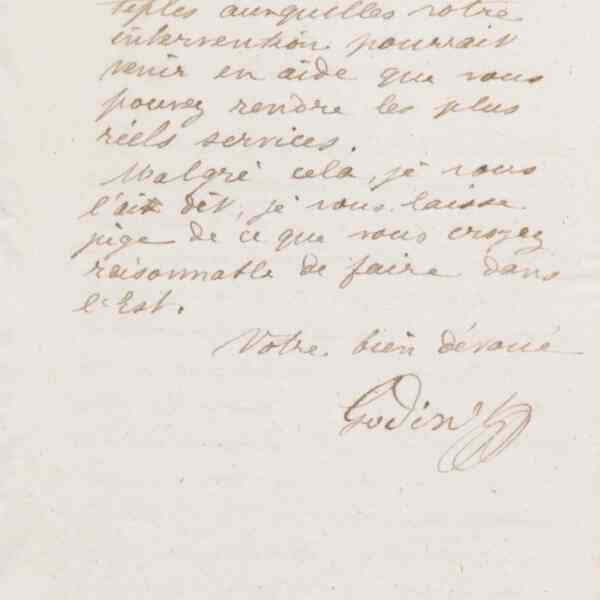 tiples auxquelles votre
intervention pourrait
venir en aide que vous
pouvez rendre les plus
réels services.
Malgré cela, je vous
l'ait dit, je vous laisse
juge de ce que vous croyez
raisonnable de faire dans
l'Est.
Votre bien dévoué
Godin